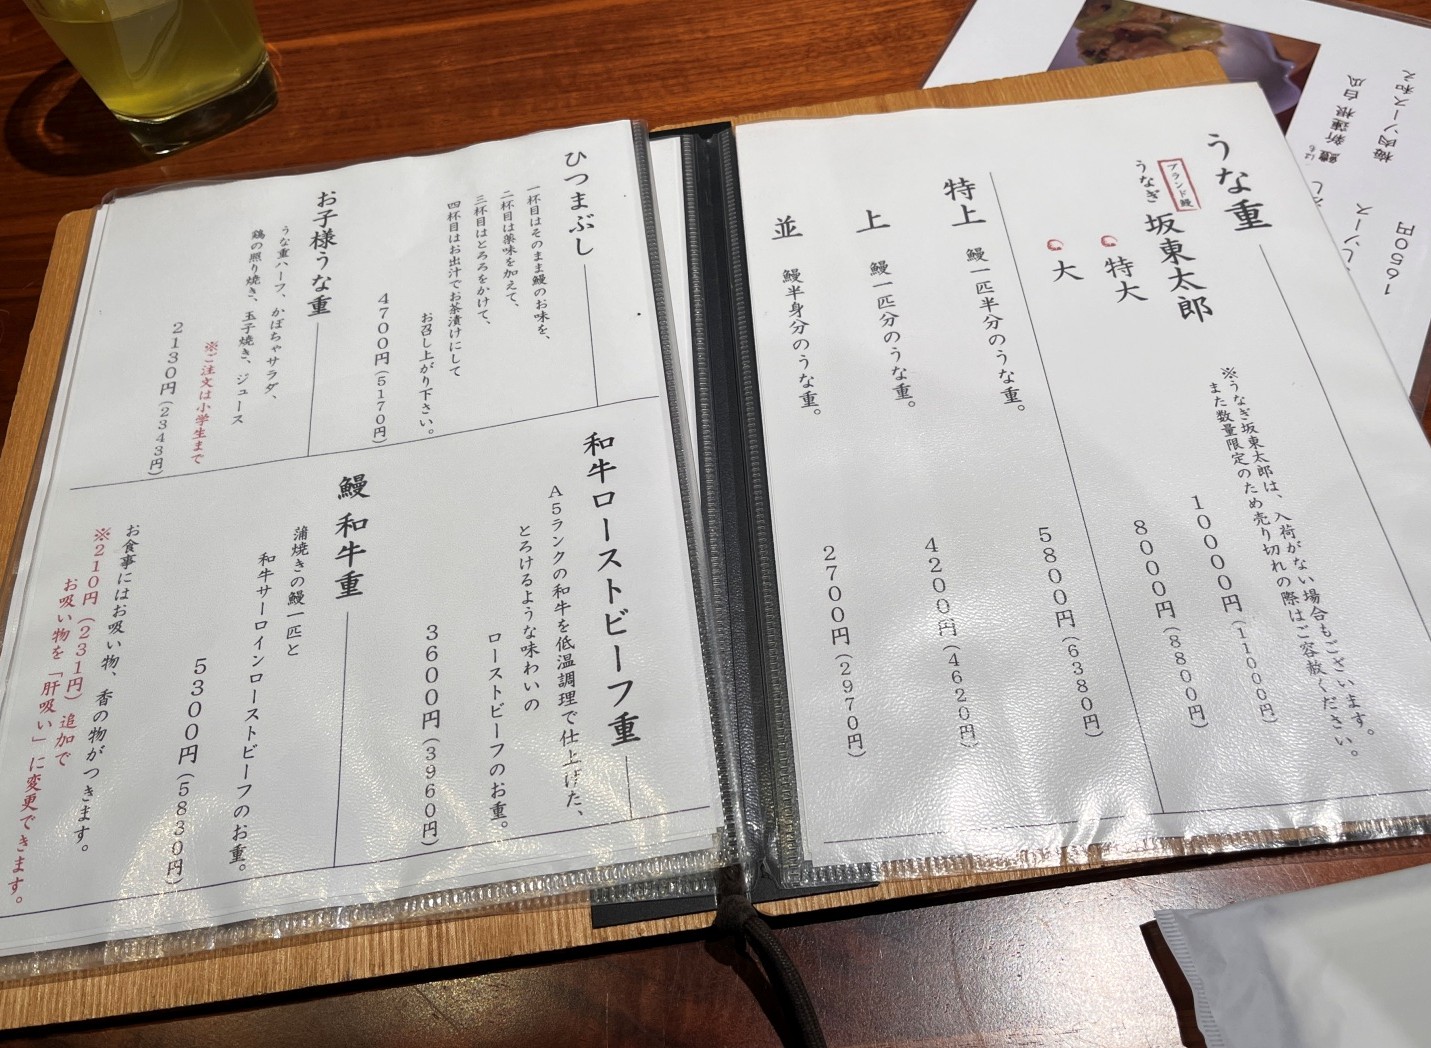 うな重
ブランド鰻
うなぎ 坂東太郎
※うなぎ坂東太郎は、入荷がない場合もございます。
また数量限定のため売り切れの際はご容赦ください。
特大
10000円(11000円)
大
8000円(8800円)
特上 鰻一匹半分のうな重。
5800円(6380円)
上 鰻一匹分のうな重。
4200円(4620円)
並 鰻半身分のうな重。
2700円(2970円)
ひつまぶし
一杯目はそのまま鰻のお味を、
二杯目は薬味を加えて、
三杯目はとろろをかけて、
四杯目はお出汁でお茶漬けにして
お召し上がり下さい。
4700円(5170円)
お子様うな重
うな重ハーフ、かぼちゃサラダ、
鶏の照り焼き、玉子焼き、ジュース
※ご注文は小学生まで
2130円(2343円)
和牛ローストビーフ重
A5ランクの和牛を低温調理で仕上げた、
とろけるような味わいの
ローストビーフのお重。
3600円(3960円)
鰻和牛重
蒲焼きの鰻一匹と
和牛サーロインローストビーフのお重。
5300円(5830円)
お食事にはお吸い物、香の物がつきます。
※210円(231円)追加で
お吸い物を「肝吸い」に変更できます。
梅肉ソース和え
新蓮根 白瓜
1650円